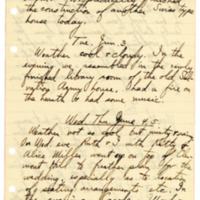 the construction of another Swiss type
house today.
Tue. Jun. 3.
Weather cool & cloudy. In the
evening we assembled in the newly
finished library room of the old Sal-
vation Army house. Had a fire on
the hearth & had some music.
Wed. Thu June 4,5.
Weather not so cool but
On Wed. eve, Ruth & I with Betty &
Alice went up on top of
want to further plans for the
wedding, especially as to location
of seating arrangements etc. In
the